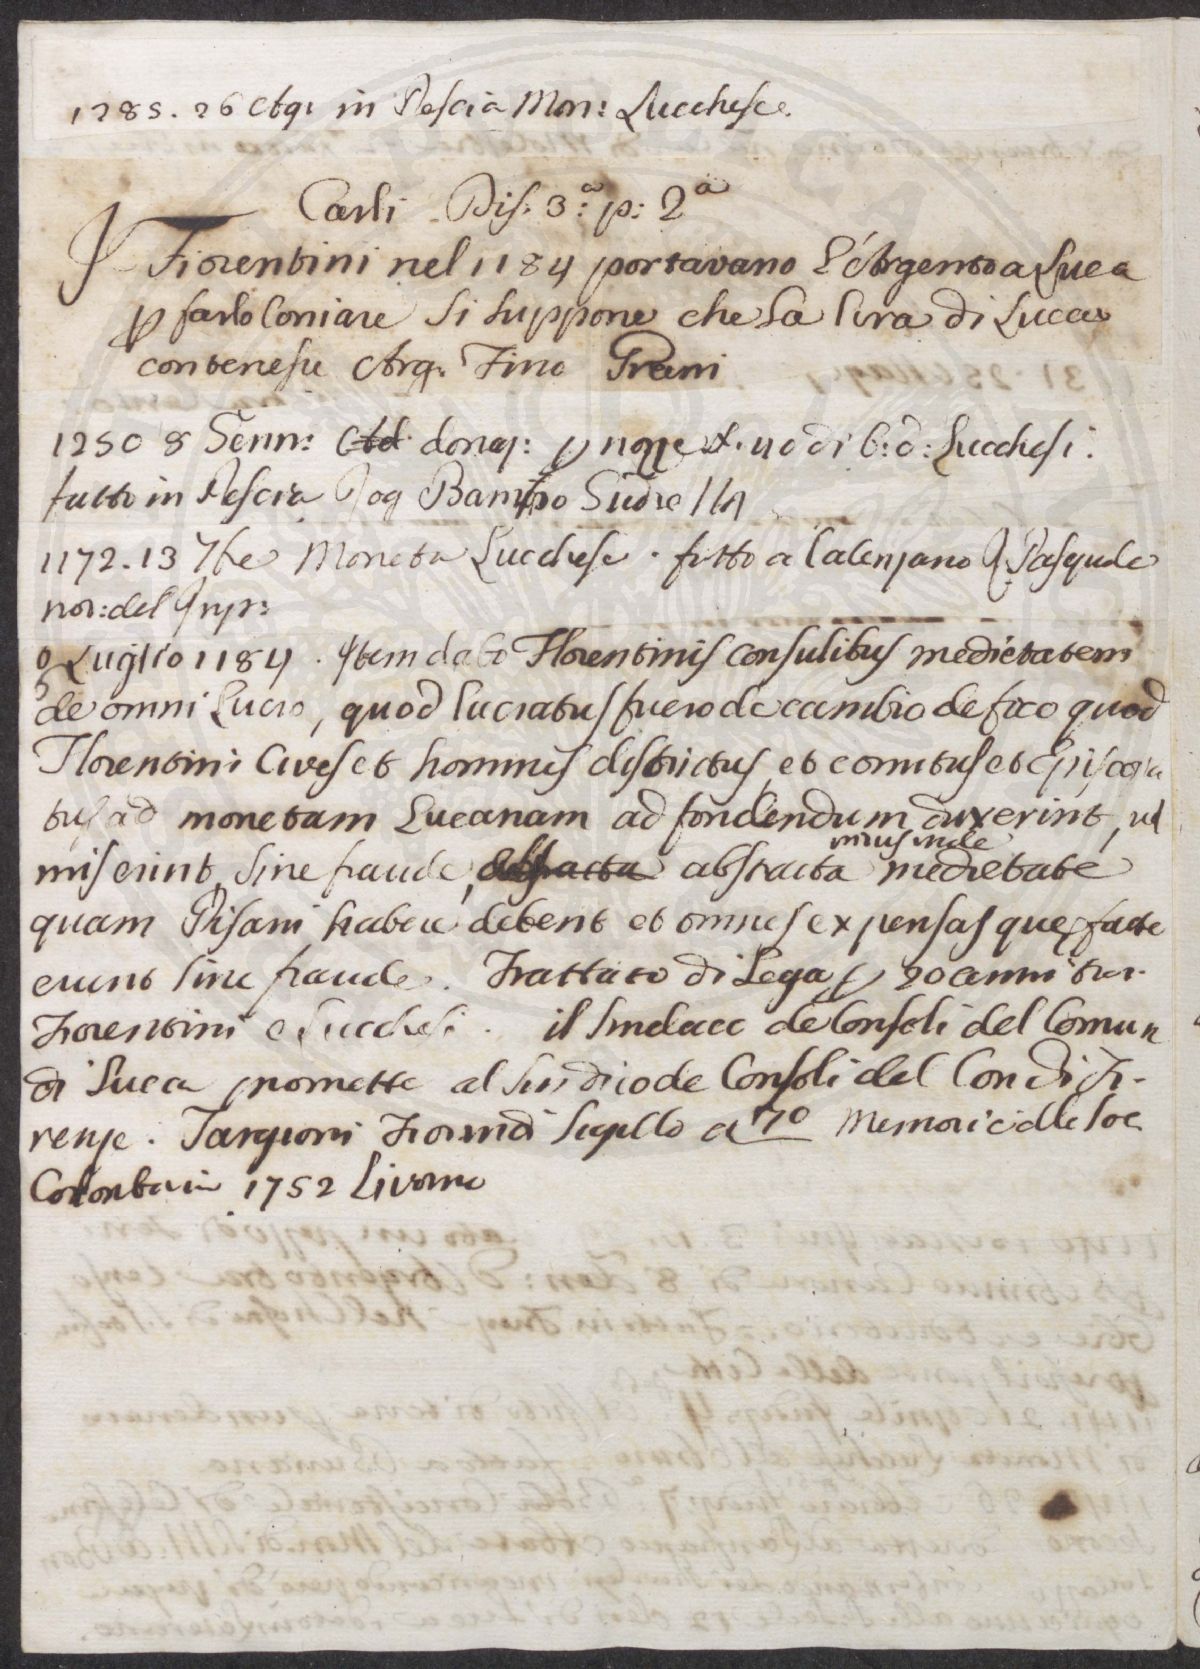 1285. 26 Ag: in Pescia Mon: Lucchese.
Carli Dis. 3.ª p: 2ª
I Fiorentini nel 1184 portavano L'Argento a Luca
p farlo Coniare si suppone che La lira di Lucca
contenesse Arg. Fino Grani
1250 8 Genn: donaz: p nozze di 40 di b: d: Lucchesi.
fatto in Pescia Rog
1172. 13 7bre Moneta Lucchese. fatto a Calenzano Pasquale
not: del Imp:
Luglio 1184. Item dabo Florentinis consulibus medietatem
de omni Lucro, quod lucratus fuero de cambio de fico quod
Florentini Cives et homines districtus et comitus et Episcopa
tus ad monetam Lucanam ad fondendum duxerint, vel
miserint, sine fraude, abstracta abstracta prius inde medietate
quam Pisani habere debent et omnes expensas que facte
erunt sine fraude. Trattato di Lega p 20 anni tra
Fiorentini e Lucchesi. il Sindaco de Consoli del Comun
di Lucca promette al Sindico de Consoli del Con di Fi-
renze. Targioni Fiorindi Sigillo a 70 Memorie delle Soc
Colombaria 1752 Livorno